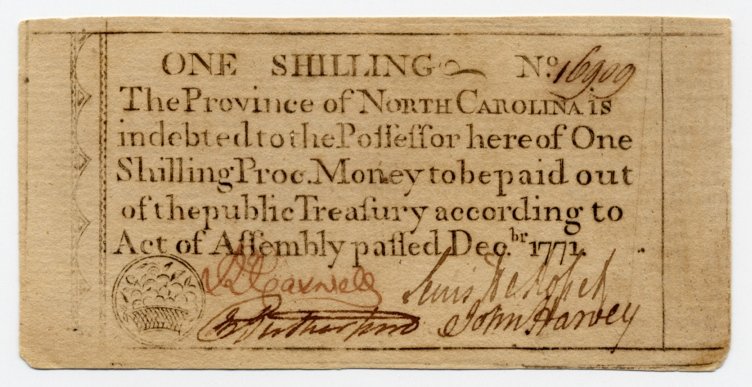 ONE SHILLING No. 16909
The Province of NORTH CAROLINA is
indebted to the Poſſeſſor here of One
Shilling Proc. Money to be paid out
of the public Treaſury according to
Act of Aſſembly paſſed Dec.br 1771.
R Caswell Lewis De Rosset
Rutherfurd John Harvey